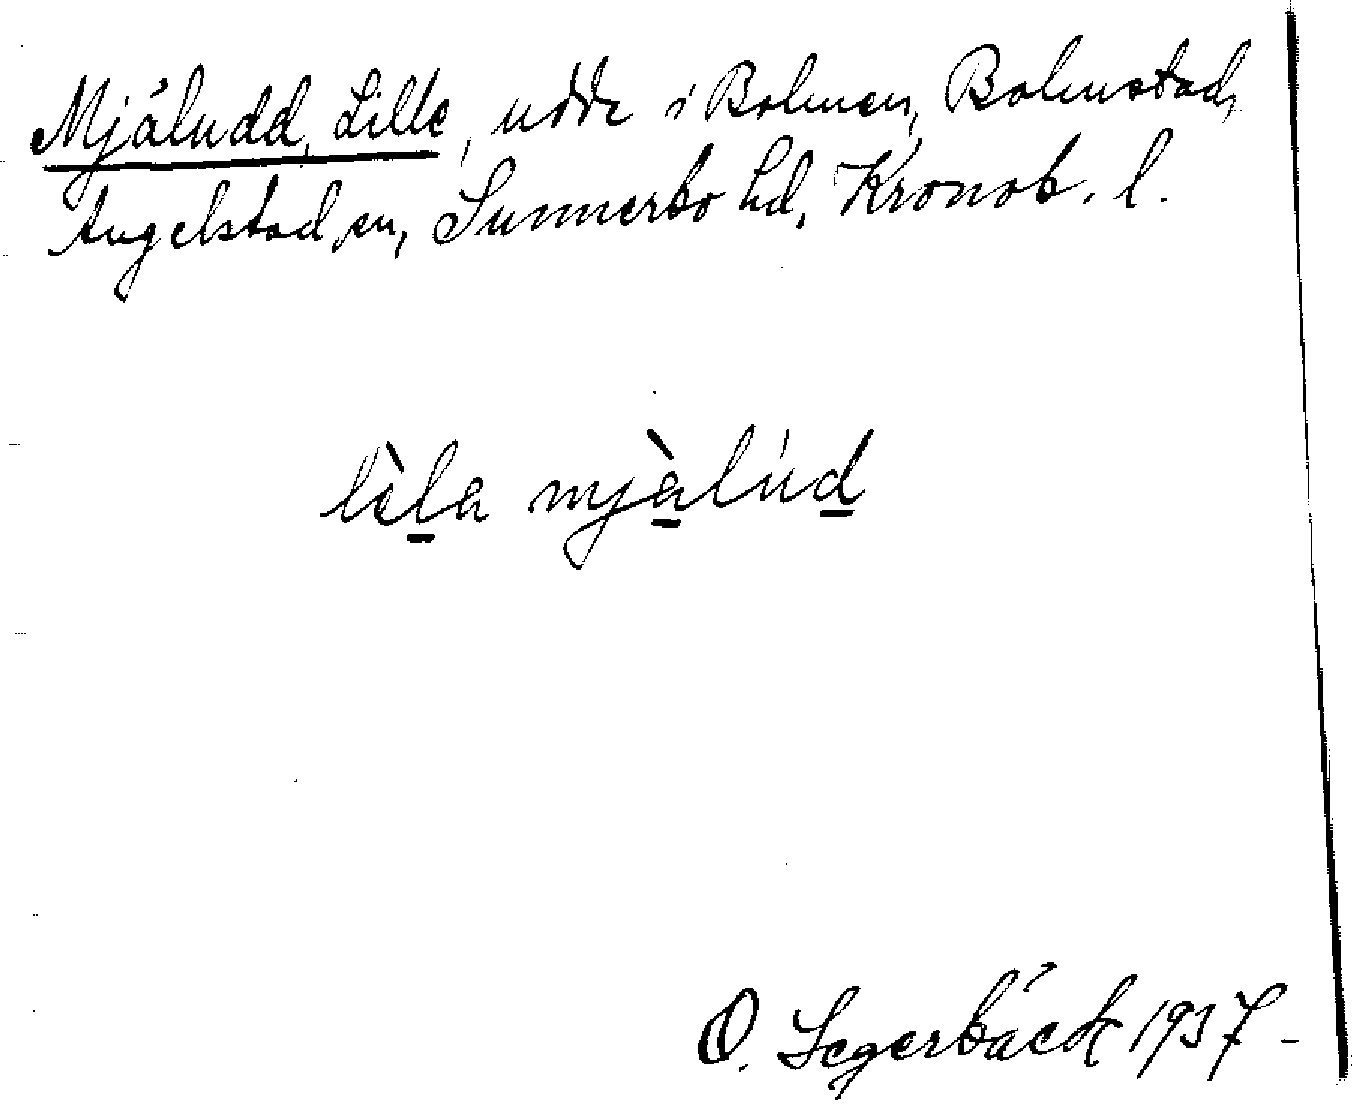 Mjäludd, Lille, udde i Bolmen, Bolmstad,
Angelstad sn, Sunnerbo hd, Kronob. l.
lèla mjàlúd
O. Segerbäck 1937